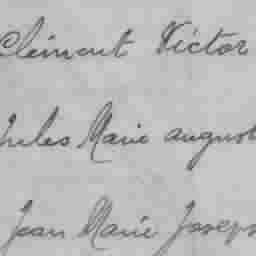 Clément Victor
Jules Marie august
Jean Marie Joseph